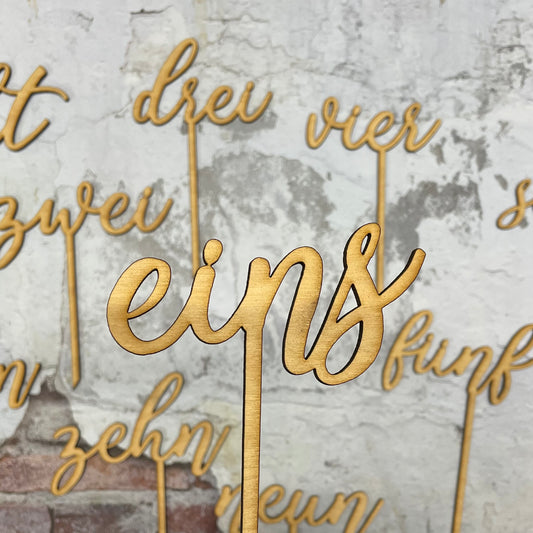 drei
vier
zwei
eins
fünf
zehn
neun